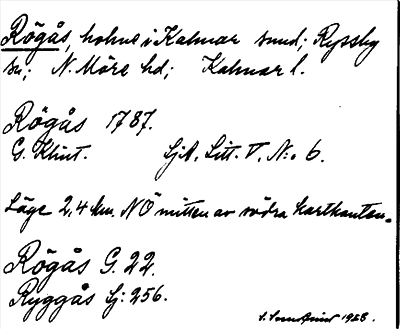 Rögås, holme i Kalmar sund; Ryssby
sn; N. Möre hd; Kalmar l.
Rögås 1787.
G. Klint. SjA. Litt. V. N:o 6.
Läge 2,4 km. NÖ mitten av södra kartkanten.
Rögås G. 22.
Ryggås Sj: 256.
1928.